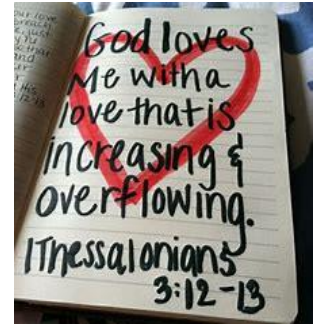 God loves
Me with a
love that is
increasing &
overflowing.
1 Thessalonians
3:12-13